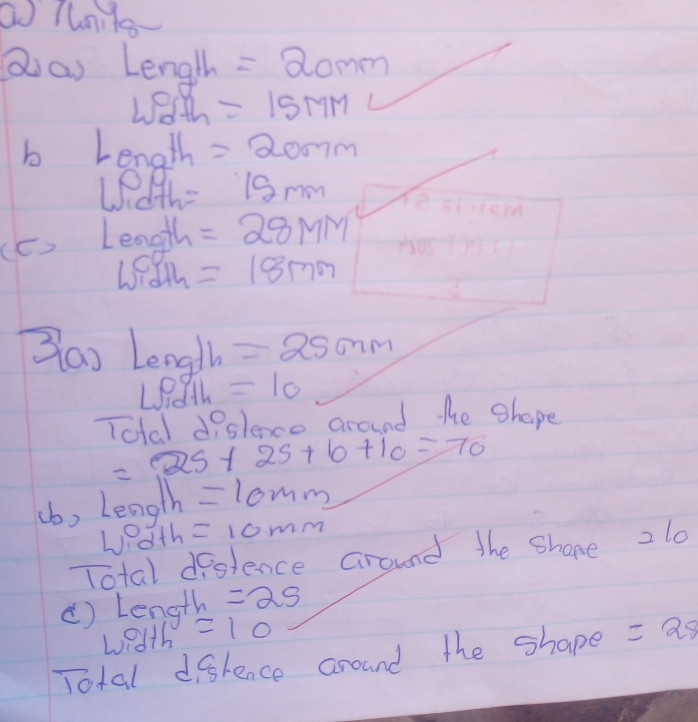 a) 7units
2.a) Length = 20mm
Width = 15MM
b Length = 20mm
Width= 15mm
(c) Length = 28MM
Width = 18mm
3(a) Length = 25mm
Width = 10
Total distence around the shape
= 25+ 25+10+10=70
(b) Length =10mm
Width=10mm
Total distence around the shape = 10
c) Length =25
Width =10
Total distence around the shape = 25